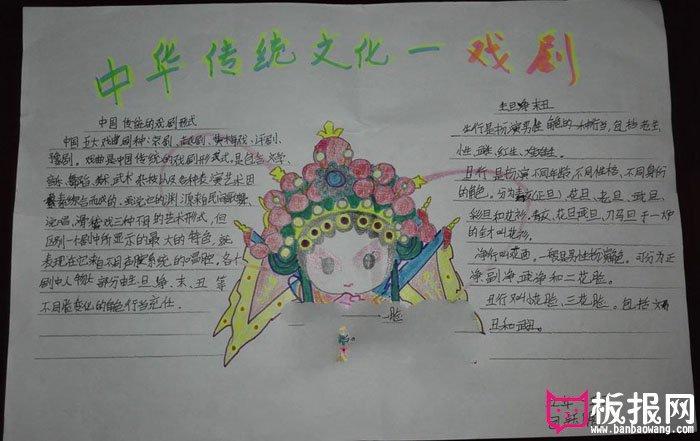 中华传统文化一戏剧
中国传统的戏剧形式
中国五大戏曲剧种：京剧、越剧、黄梅戏、评剧、
豫剧。戏曲是中国传统的戏剧形式。是包含文学、
音乐、舞蹈、美术、武术、杂技以及各种表演艺术因
综合而成的。
说唱、滑稽戏三种不同的艺术形式，但
区别一个剧中所显示的最大的特色，
表现在它来自不同声腔系统的唱腔。各个
剧中人物大部分由生、旦、净、末、丑等
不同脸变化的角色行当充任。
生旦净末丑
生行是扮演男性角色的一种行当，包括老生、
小生、武生、红生、娃娃生。
旦行是扮演不同年龄、不同性格、不同身份
的角色。分为青衣(正旦)、花旦、老旦、武旦、
彩旦和花衫。青衣、花旦、武旦、刀马旦于一炉
的全才叫花衫。
净行叫花面。一般是男性扮演角色。可分为正
净、副净、武净和二花脸。
丑行叫小花脸、三花脸。包括文丑
丑和武丑。
脸
板报网
www.banbaowang.com